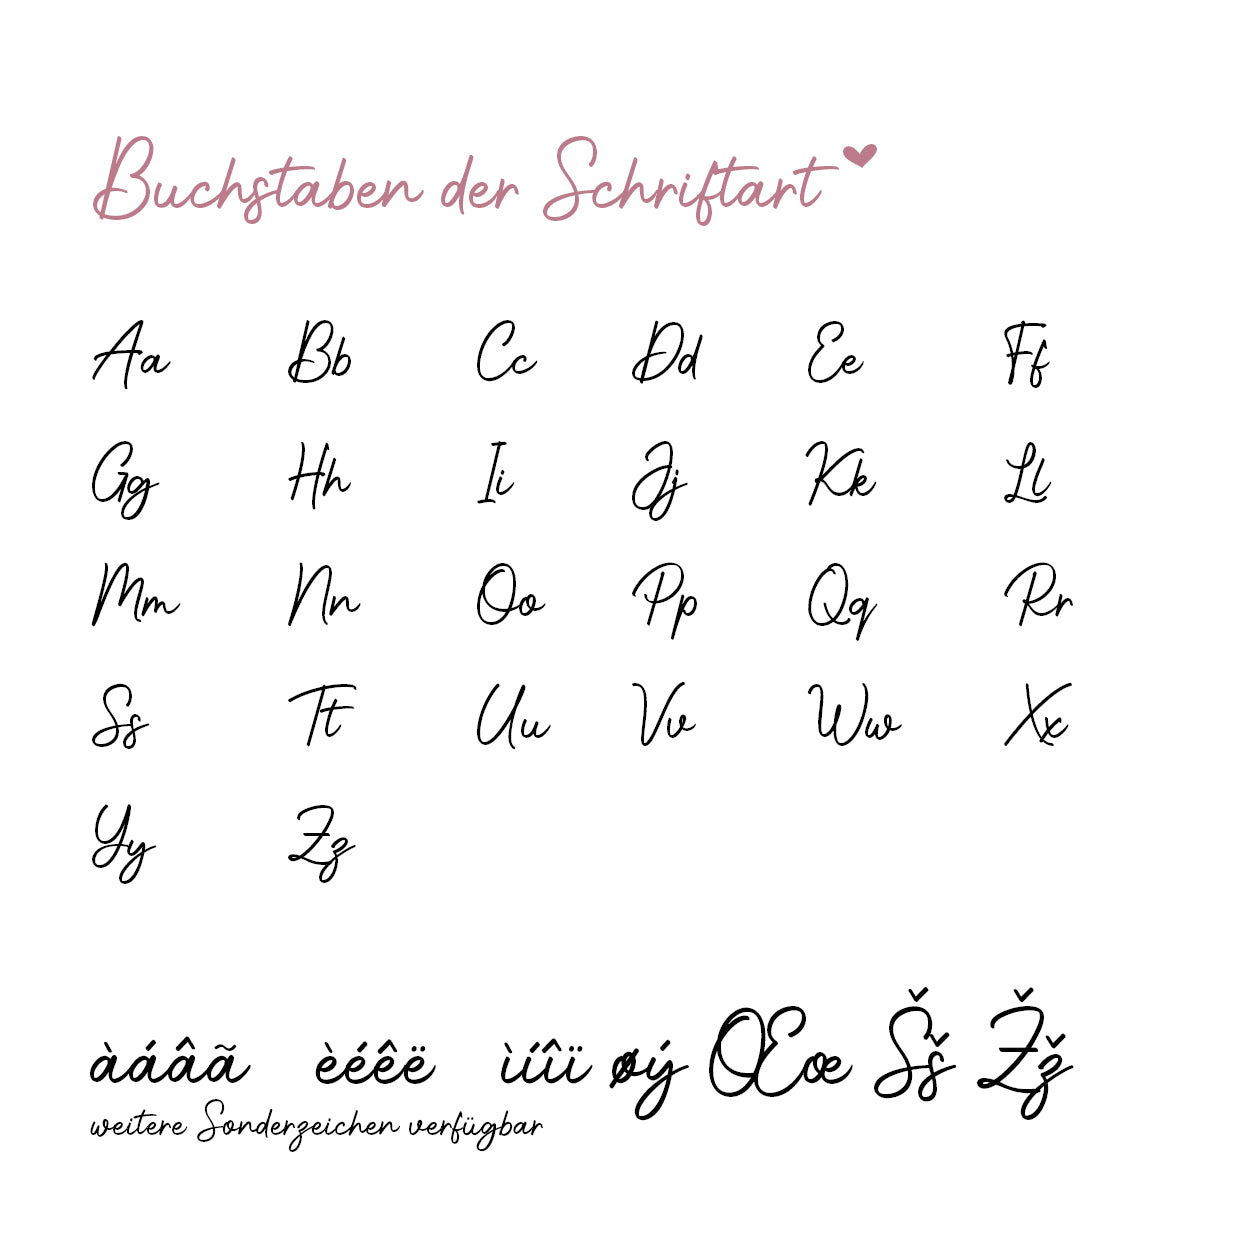 Buchstaben der Schriftart
Aa Bb Cc Dd Ee Ff
Gg Hh Ii Jj Kk Ll
Mm Nn Oo Pp Qq Rr
Ss Tt Uu Vv Ww Xx
Yy Zz
àáâã èéêë ìíîï øý Œœ Šš Žž
weitere Sonderzeichen verfügbar